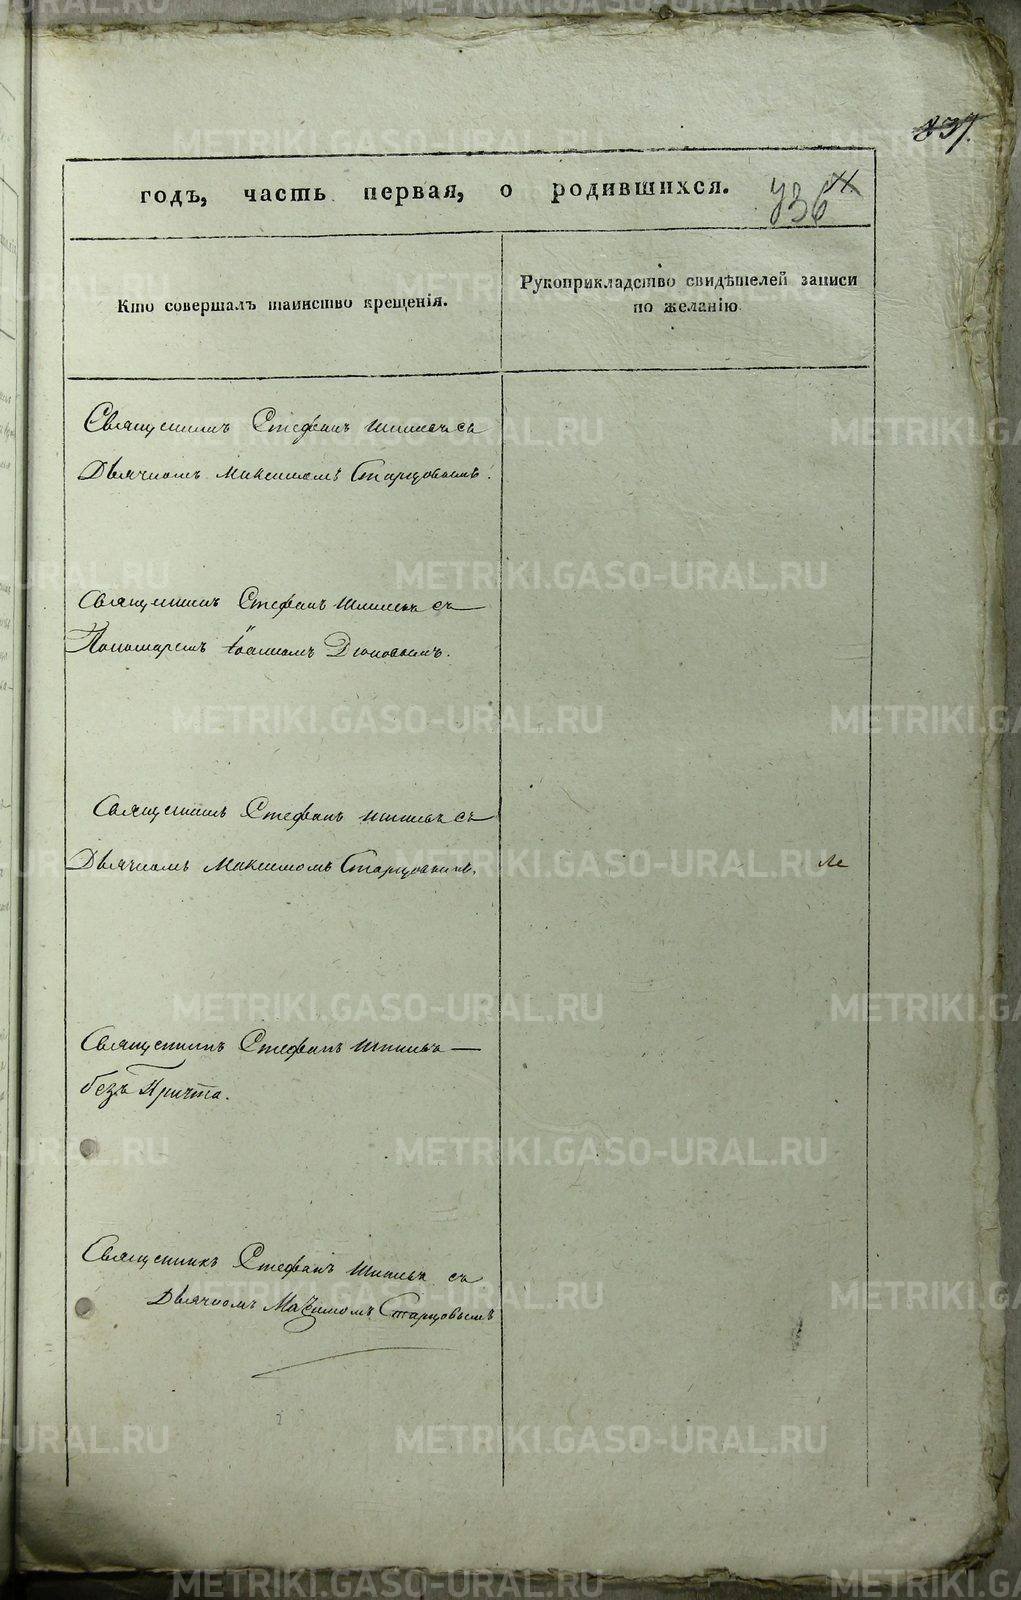 837.
годъ, часть первая, о родившихся.
736
Кто совершалъ таинство крещенія.
Рукоприкладство свидѣтелей записи
по желанію
Священникъ Стефанъ Шишевъ съ
Дьячкомъ Максимомъ Старцовымъ.
Священникъ Стефанъ съ
Пономаремъ Іоанномъ
Священникъ Стефанъ съ
Дьячкомъ Максимомъ Старцовымъ.
Священникъ Стефанъ —
безъ Причта.
Священникъ Стефанъ съ
Дьячкомъ Максимомъ Старцовымъ
METRIKI.GASO-URAL.RU